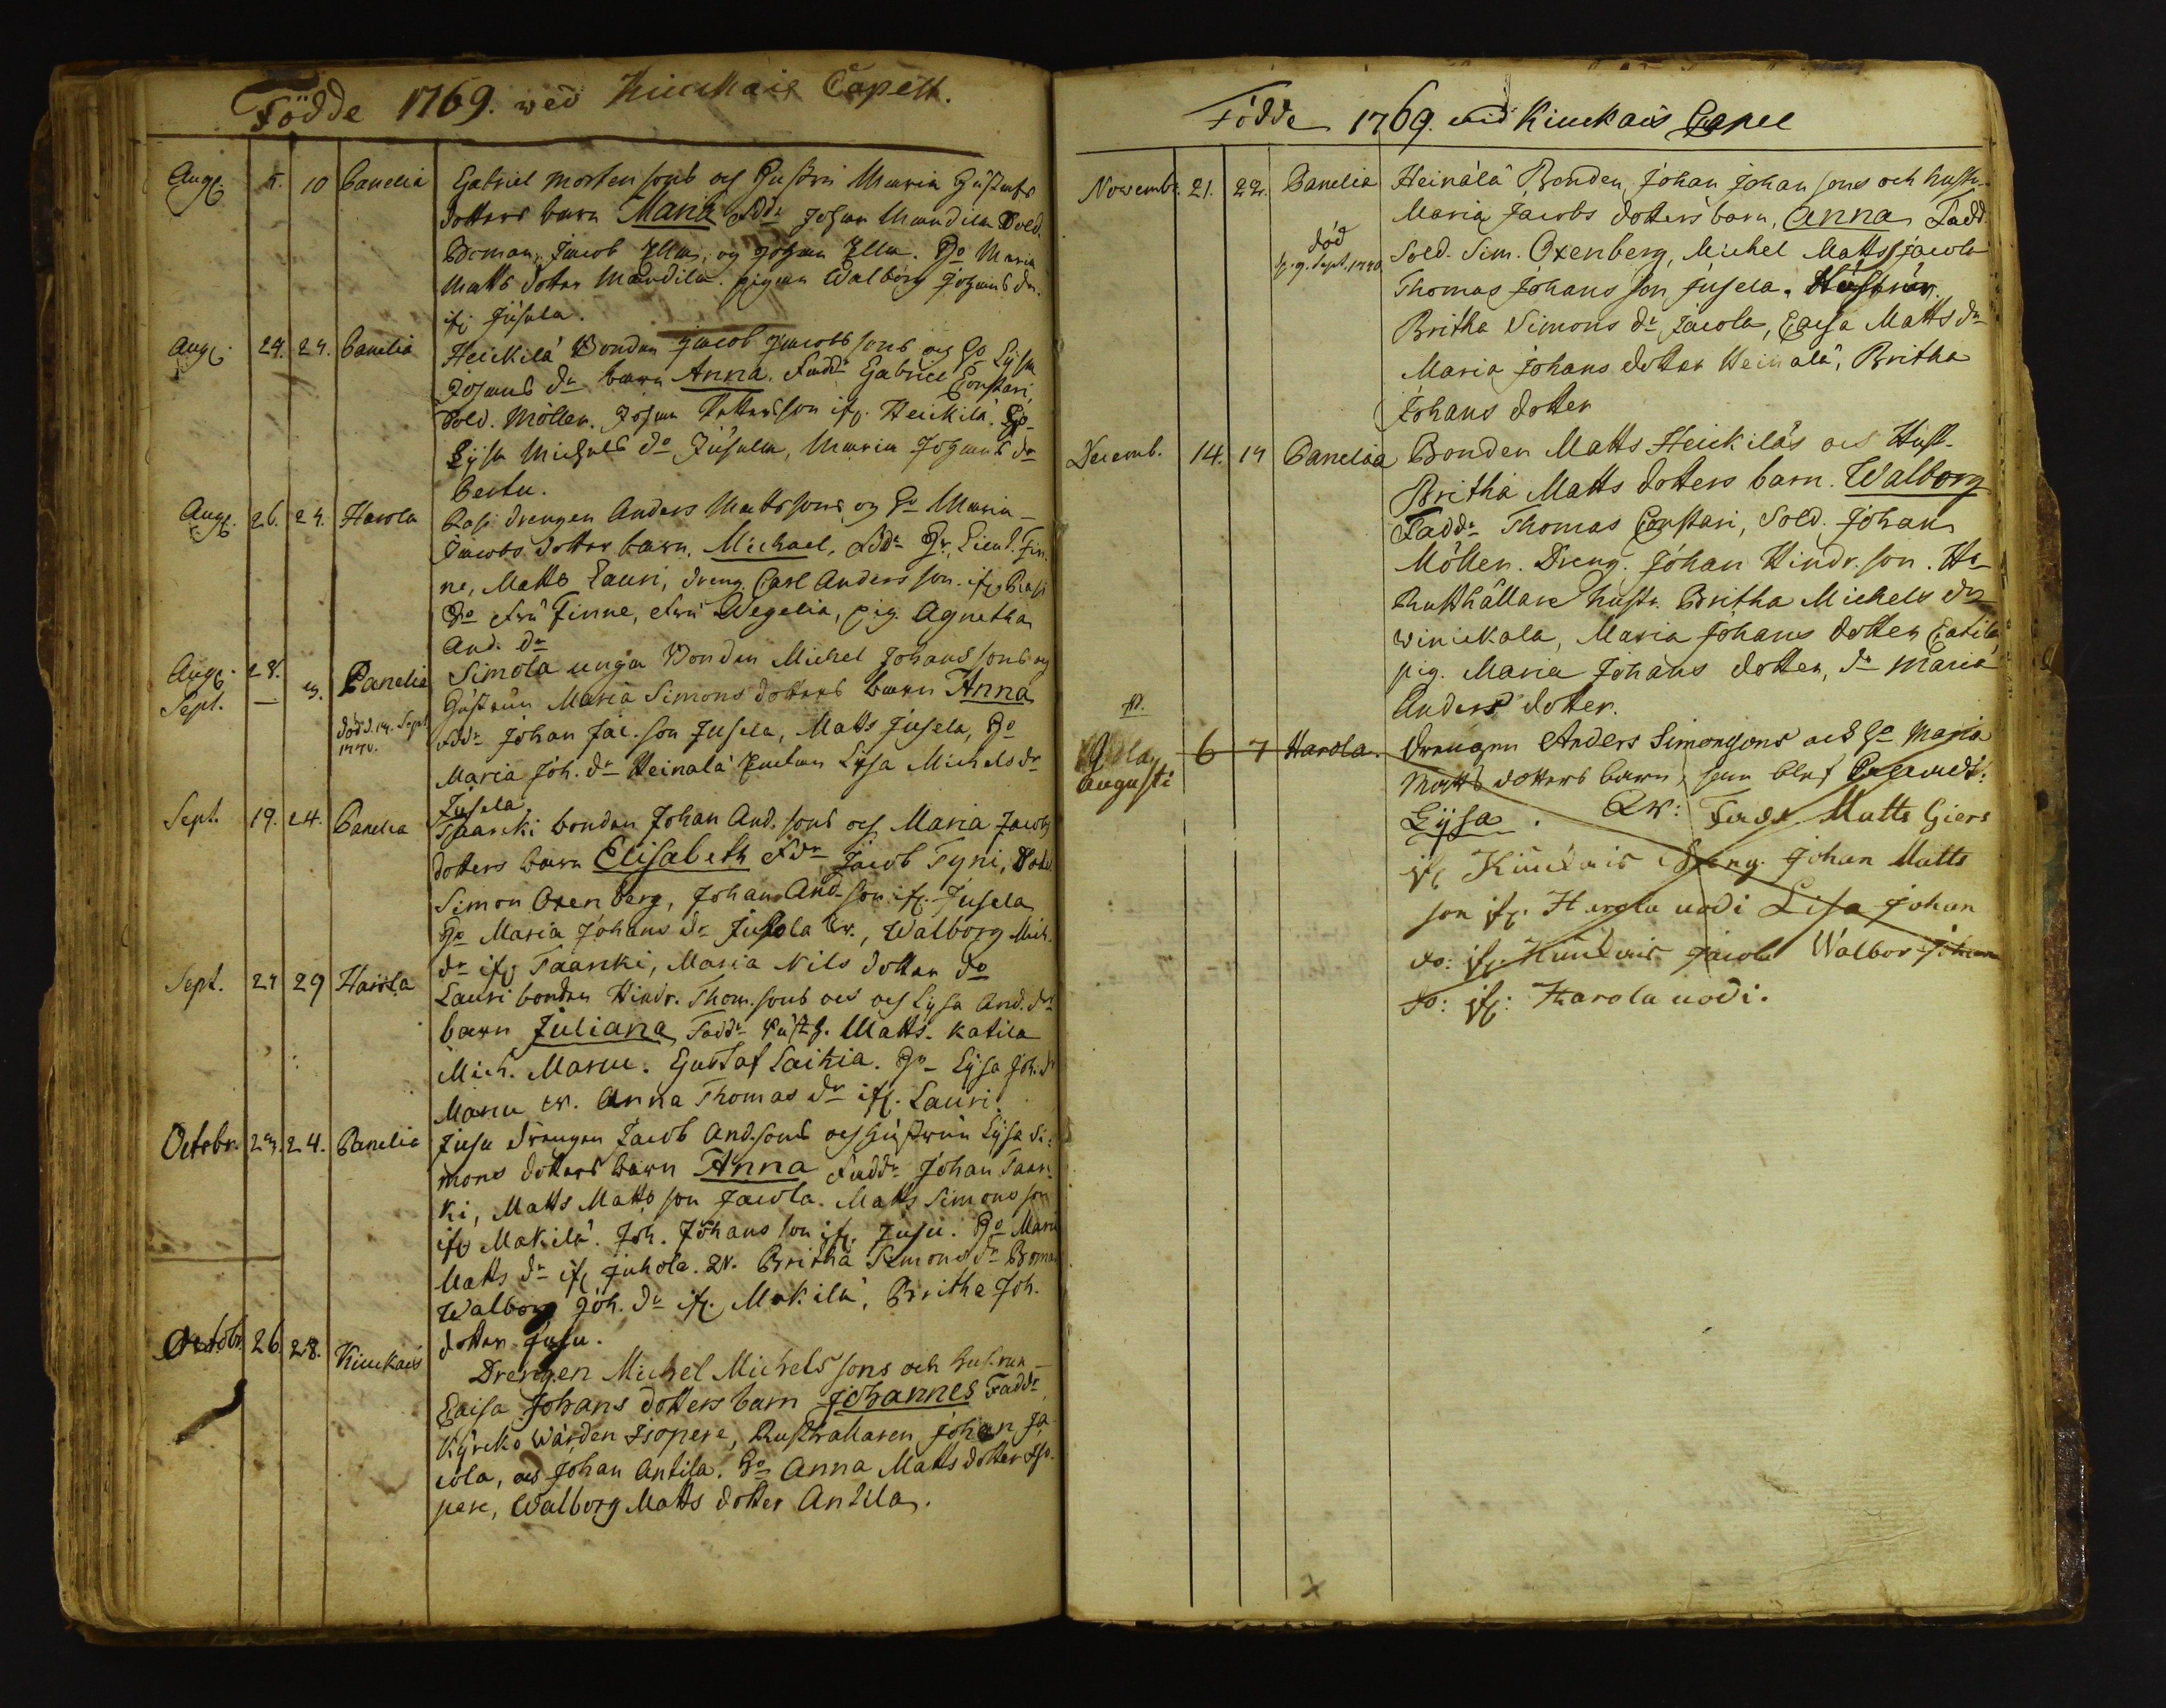 Födde 1769. wed Kiuckais Capell.
Aug. 5. 10 Panelia Gabriel Mortensons och Hustru Maria Gustafs
dotters barn Maria Fddr Johan Mandila Sold.
Boman, Jacob Ella, och Johan Ella. Ho Maria
Matts dotter Mandila. pigan Walborg Johans dr.
if. Jusela.
Aug. 24. 24. Panelia Heickilä Bonden Jacob Jacobs sons och Ho Lysa
Johans dr barn Anna. Faddr Gabriel Constari,
Sold. Möller. Johan Matts son if. Heickilä. Ho
Lysa Michels dr Jusela, Maria Johans dr
Pertu.
Aug. 26. 27. Harola Pasi drengen Anders Matts sons och Ho Maria
Jacobs dotter barn. Michael, Fddr Hr. Lieut. Fin-
ne, Matts Lauri, dreng Carl Anders son. if. Pasi
Ho Fru Finne, Fru Wegelia, pig. Agnetha
And. dr
Aug. 28. Sept. — 3. Panelia Simola unga Bonden Michel Johans sons och
Hustrun Maria Simons dotters barn Anna
död d. 14. Sept. 1770. Fddr Johan Jac. son Jusela, Matts Jusela, Ho
Maria Joh. dr Heinälä Enckan Lysa Michels dr
Jusela
Sept. 19. 24. Panelia Taarcki bonden Johan And. sons och Maria Jacobs
dotters barn Elisabeth Fdr Jacob Tyni, Sold.
Simon Oxenberg, Johan And. son if. Jusela
Ho Maria Johans dr Jusola Qv., Walborg Mich.
dr if. Taarcki, Maria Nils dotter do
Sept. 27 29 Harola Lauri bonden Hindr. Thom. sons och Lysa And. dr
barn Juliana Faddr Rusth. Matts. Katila
Mich. Manu. Gustaf Laihia. Ho Lysa Joh. dr
Manu Qv. Anna Thomas dr if. Lauri.
Octobr. 23. 24. Panelia Jusu drengen Jacob And. sons och Hustrun Lysa Si-
mons dotters barn Anna Faddr Johan Taar-
ki, Matts Matts son Jacola. Matts Simons son
if. Mäkilä. Joh. Johans son if. Jusu. Ho Maria
Matts dr if. Juhola. Qv. Britha Simons dr Boman
Walborg Joh. dr if. Mäkilä, Britha Joh.
dotter Jusu.
Octobr. 26. 28. Kiuckais Drengen Michel Michels sons och hustrun
Caisa Johans dotters barn Johannes Faddr
Kyrcko wärden Isopere, Rusthållaren Johan Ja-
cola, och Johan Antila. Ho Anna Matts dotter Iso-
pere, Walborg Matts dotter Antila.
Födde 1769. wid Kiuckais Capel
Novembr. 21. 22. Panelia Heinälä Bonden, Johan Johan sons och hustru
Maria Jacobs dotters barn, Anna Fadd.
död d. 9. Sept. 1770 Sold. Sim. Oxenberg, Michel Matts s. Jacola
Thomas Johans son Jusela. Hustrur
Britha Simons dr Jacola, Caisa Matts dr
Maria Johans dotter Heinälä, Britha
Johans dotter
Decemb. 14. 17 Panelia Bonden Matts Heickiläs och Hust.
Britha Matts dotters barn. Walborg
Faddr Thomas Constari, Sold. Johan
Möller. Dreng. Johan Hindr. son. Ho
Rusthållare hustr. Britha Michels dr
Winickala, Maria Johans dotter Catila
pig. Maria Johans dotter, dr Maria
Anders dotter.
Augusti 6 7 Harola. Drengen Anders Simonsons och Ho Maria
Matts dotters barn, som blef
Lysa. Qv: Fadr. Matts Giers
if. Kiuckais Dreng. Johan Matts
son if. Harola uodi Lisa Johan
do: if. Kiuckais Jacola Walbor Johan
do: if: Harola uodi.